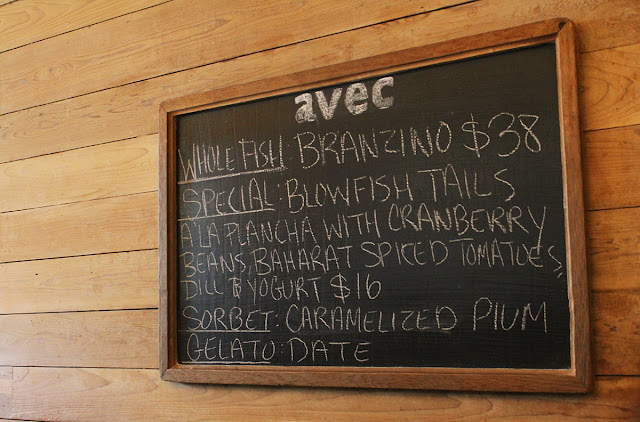 avec
WHOLE FISH: BRANZINO $38
SPECIAL: BLOWFISH TAILS
A LA PLANCHA WITH CRANBERRY
BEANS, BAHARAT SPICED TOMATOES,
DILL & YOGURT $16
SORBET: CARAMELIZED PLUM
GELATO: DATE